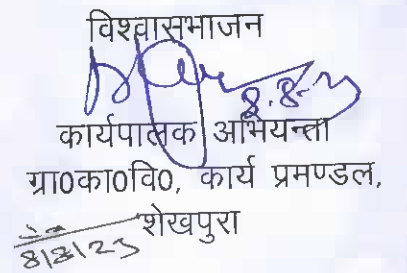 विश्वासभाजन
8.8.23
कार्यपालक अभियन्ता
ग्रा0का0वि0, कार्य प्रमण्डल,
शेखपुरा
8/8/23